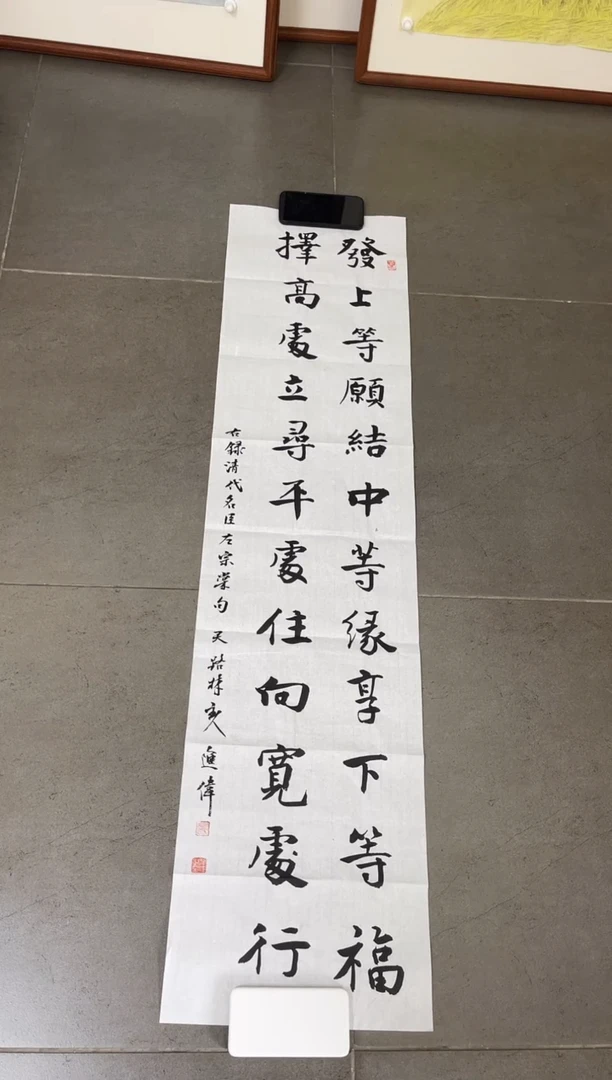 發上等願結中等緣享下等福
擇高處立尋平處住向寬處行
右錄清代名臣左宗棠句 天路樵人 進偉